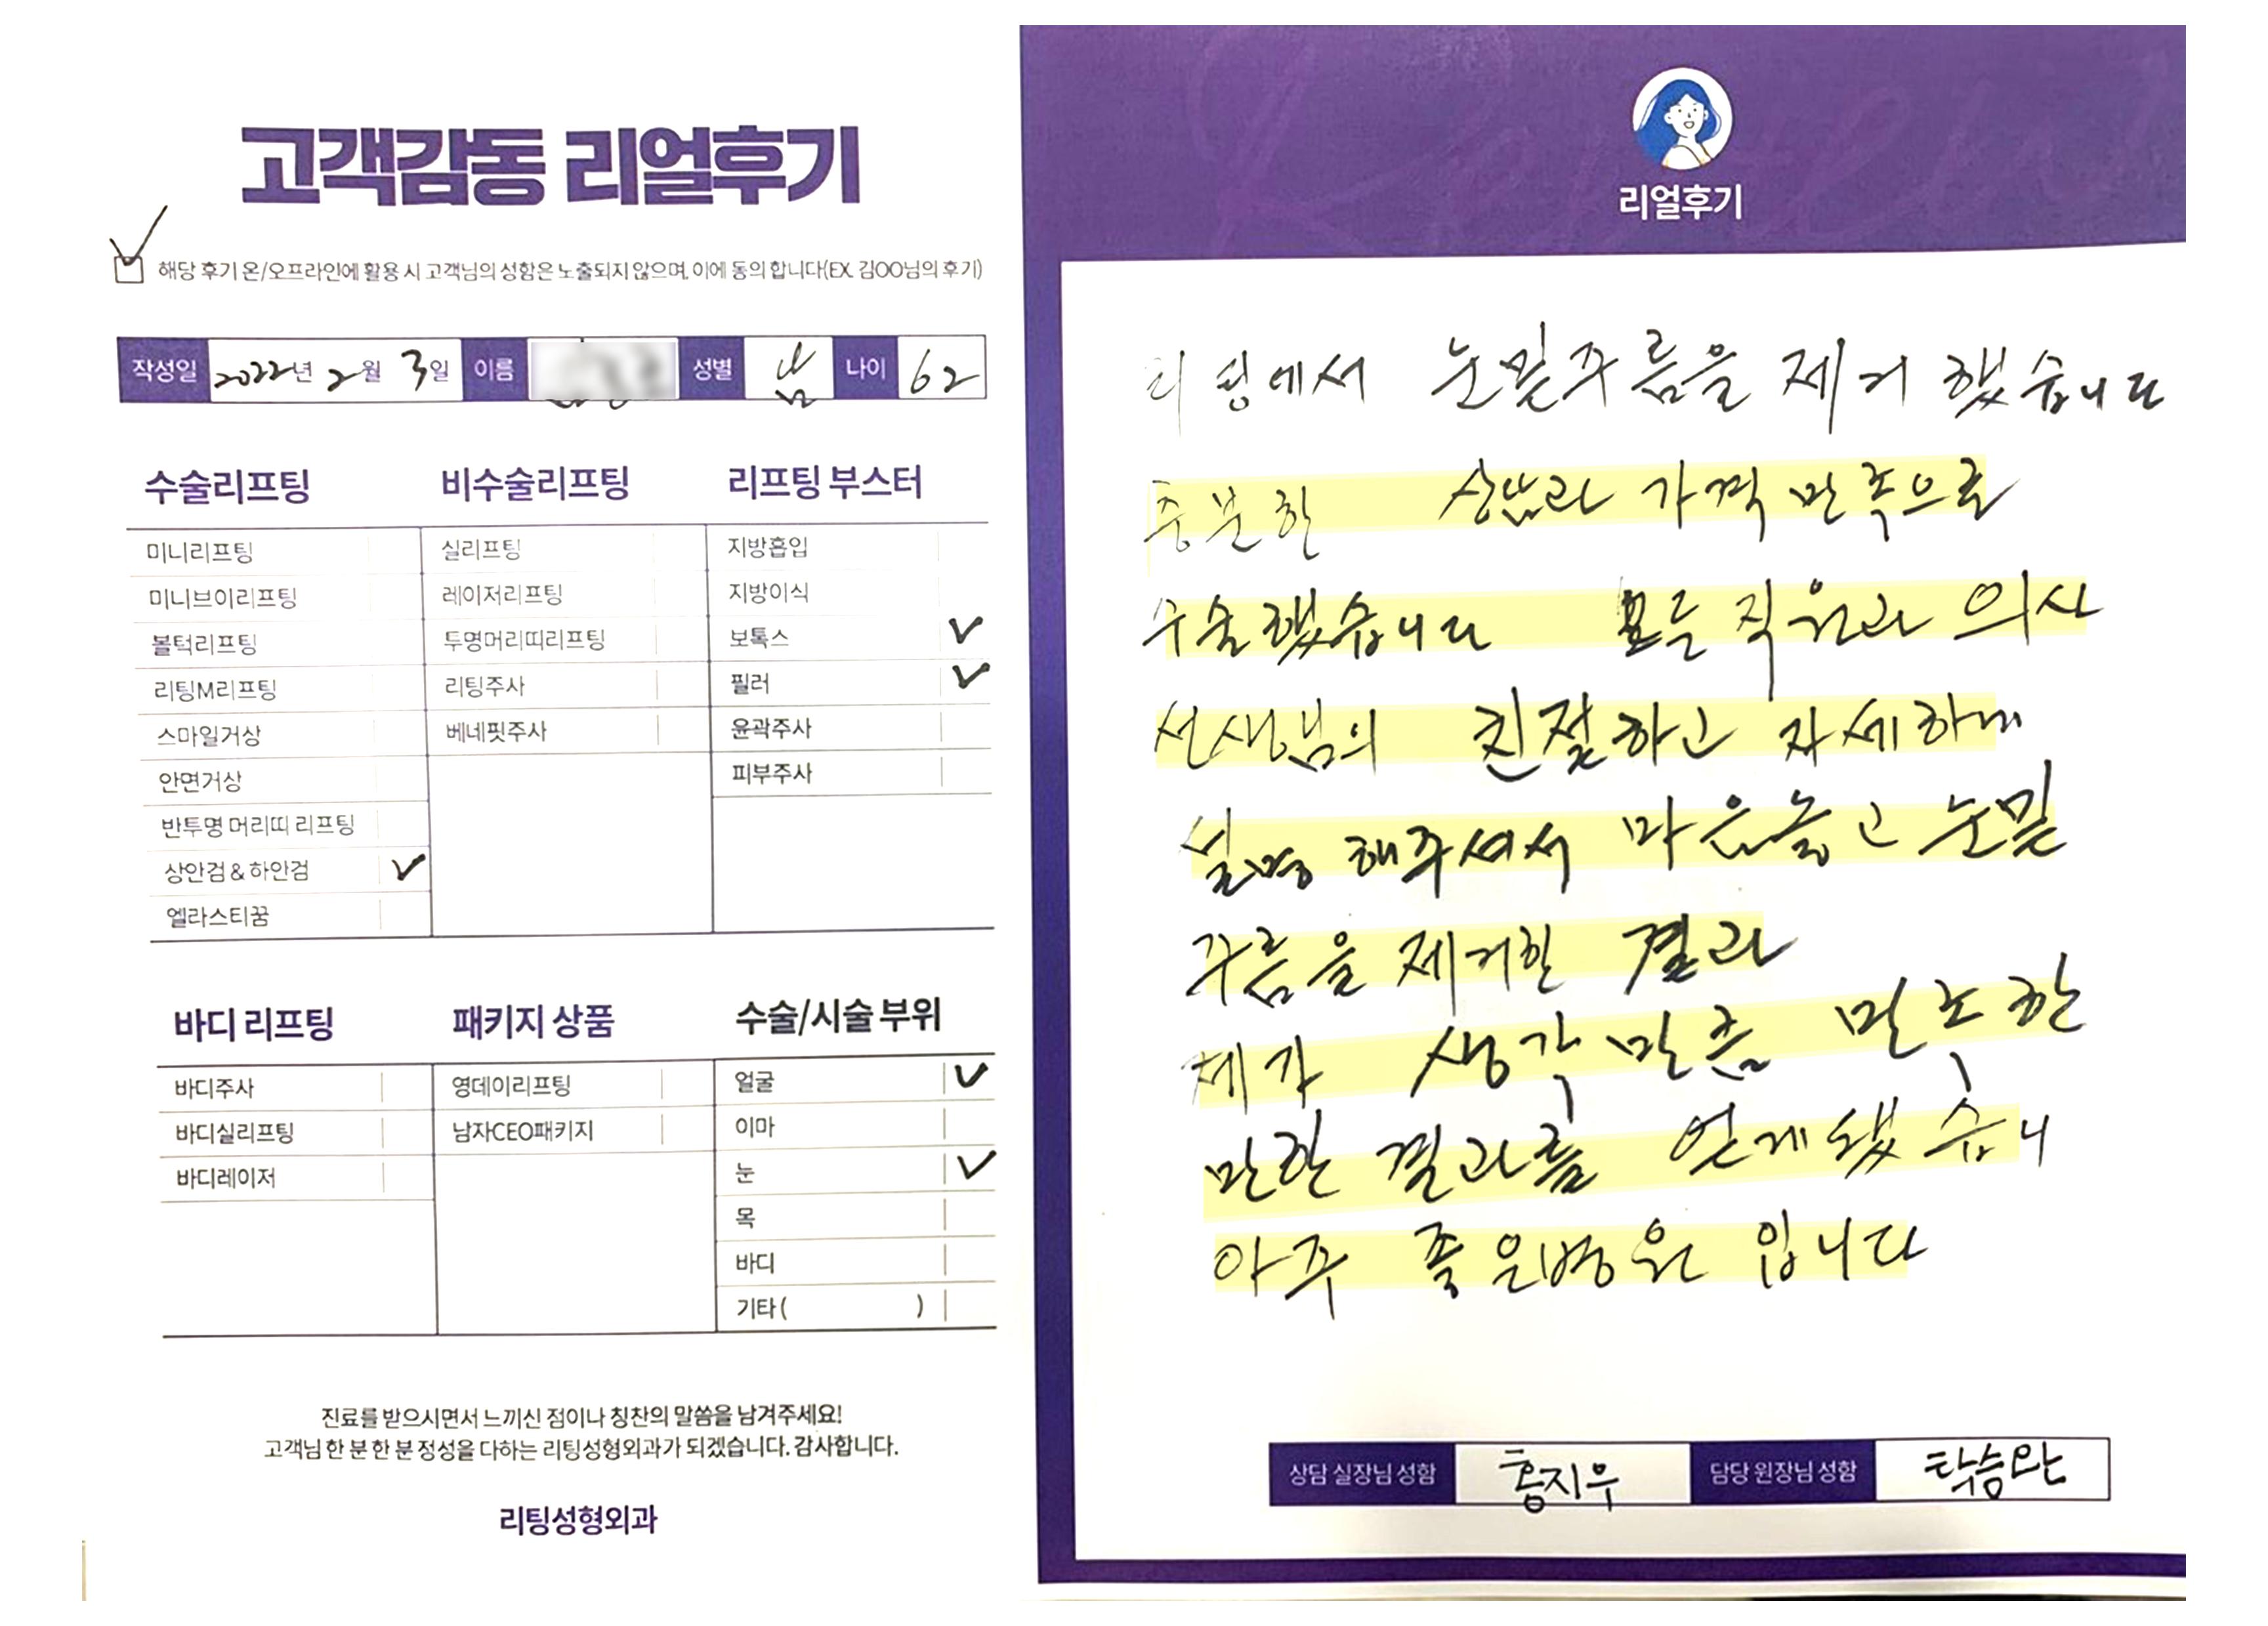 고객감동 리얼후기
해당 후기 온/오프라인에 활용 시 고객님의 성함은 노출되지 않으며, 이에 동의 합니다(EX. 김OO님의 후기)
작성일 2022년 2월 3일 이름 성별 남 나이 62
수술리프팅 비수술리프팅 리프팅 부스터
미니리프팅 실리프팅 지방흡입
미니브이리프팅 레이저리프팅 지방이식
볼턱리프팅 투명머리띠리프팅 보톡스 ✓
리팅M리프팅 리팅주사 필러 ✓
스마일거상 베네핏주사 윤곽주사
안면거상 피부주사
반투명 머리띠 리프팅
상안검 & 하안검 ✓
엘라스티꿈
바디 리프팅 패키지 상품 수술/시술 부위
바디주사 영데이리프팅 얼굴 ✓
바디실리프팅 남자CEO패키지 이마
바디레이저 눈 ✓
목
바디
기타 ( )
진료를 받으시면서 느끼신 점이나 칭찬의 말씀을 남겨주세요!
고객님 한 분 한 분 정성을 다하는 리팅성형외과가 되겠습니다. 감사합니다.
리팅성형외과
리얼후기
리팅에서 눈밑주름을 제거 했습니다
충분한 상담과 가격 만족으로
수술했습니다 모든 직원과 의사
선생님의 친절하고 자세하게
설명 해주셔서 마음놓고 눈밑
주름을 제거한 결과
제가 생각 만큼 만족한
만한 결과를 얻게됐습니
아주 좋은병원 입니다
상담 실장님 성함 홍지우 담당 원장님 성함 탁승완